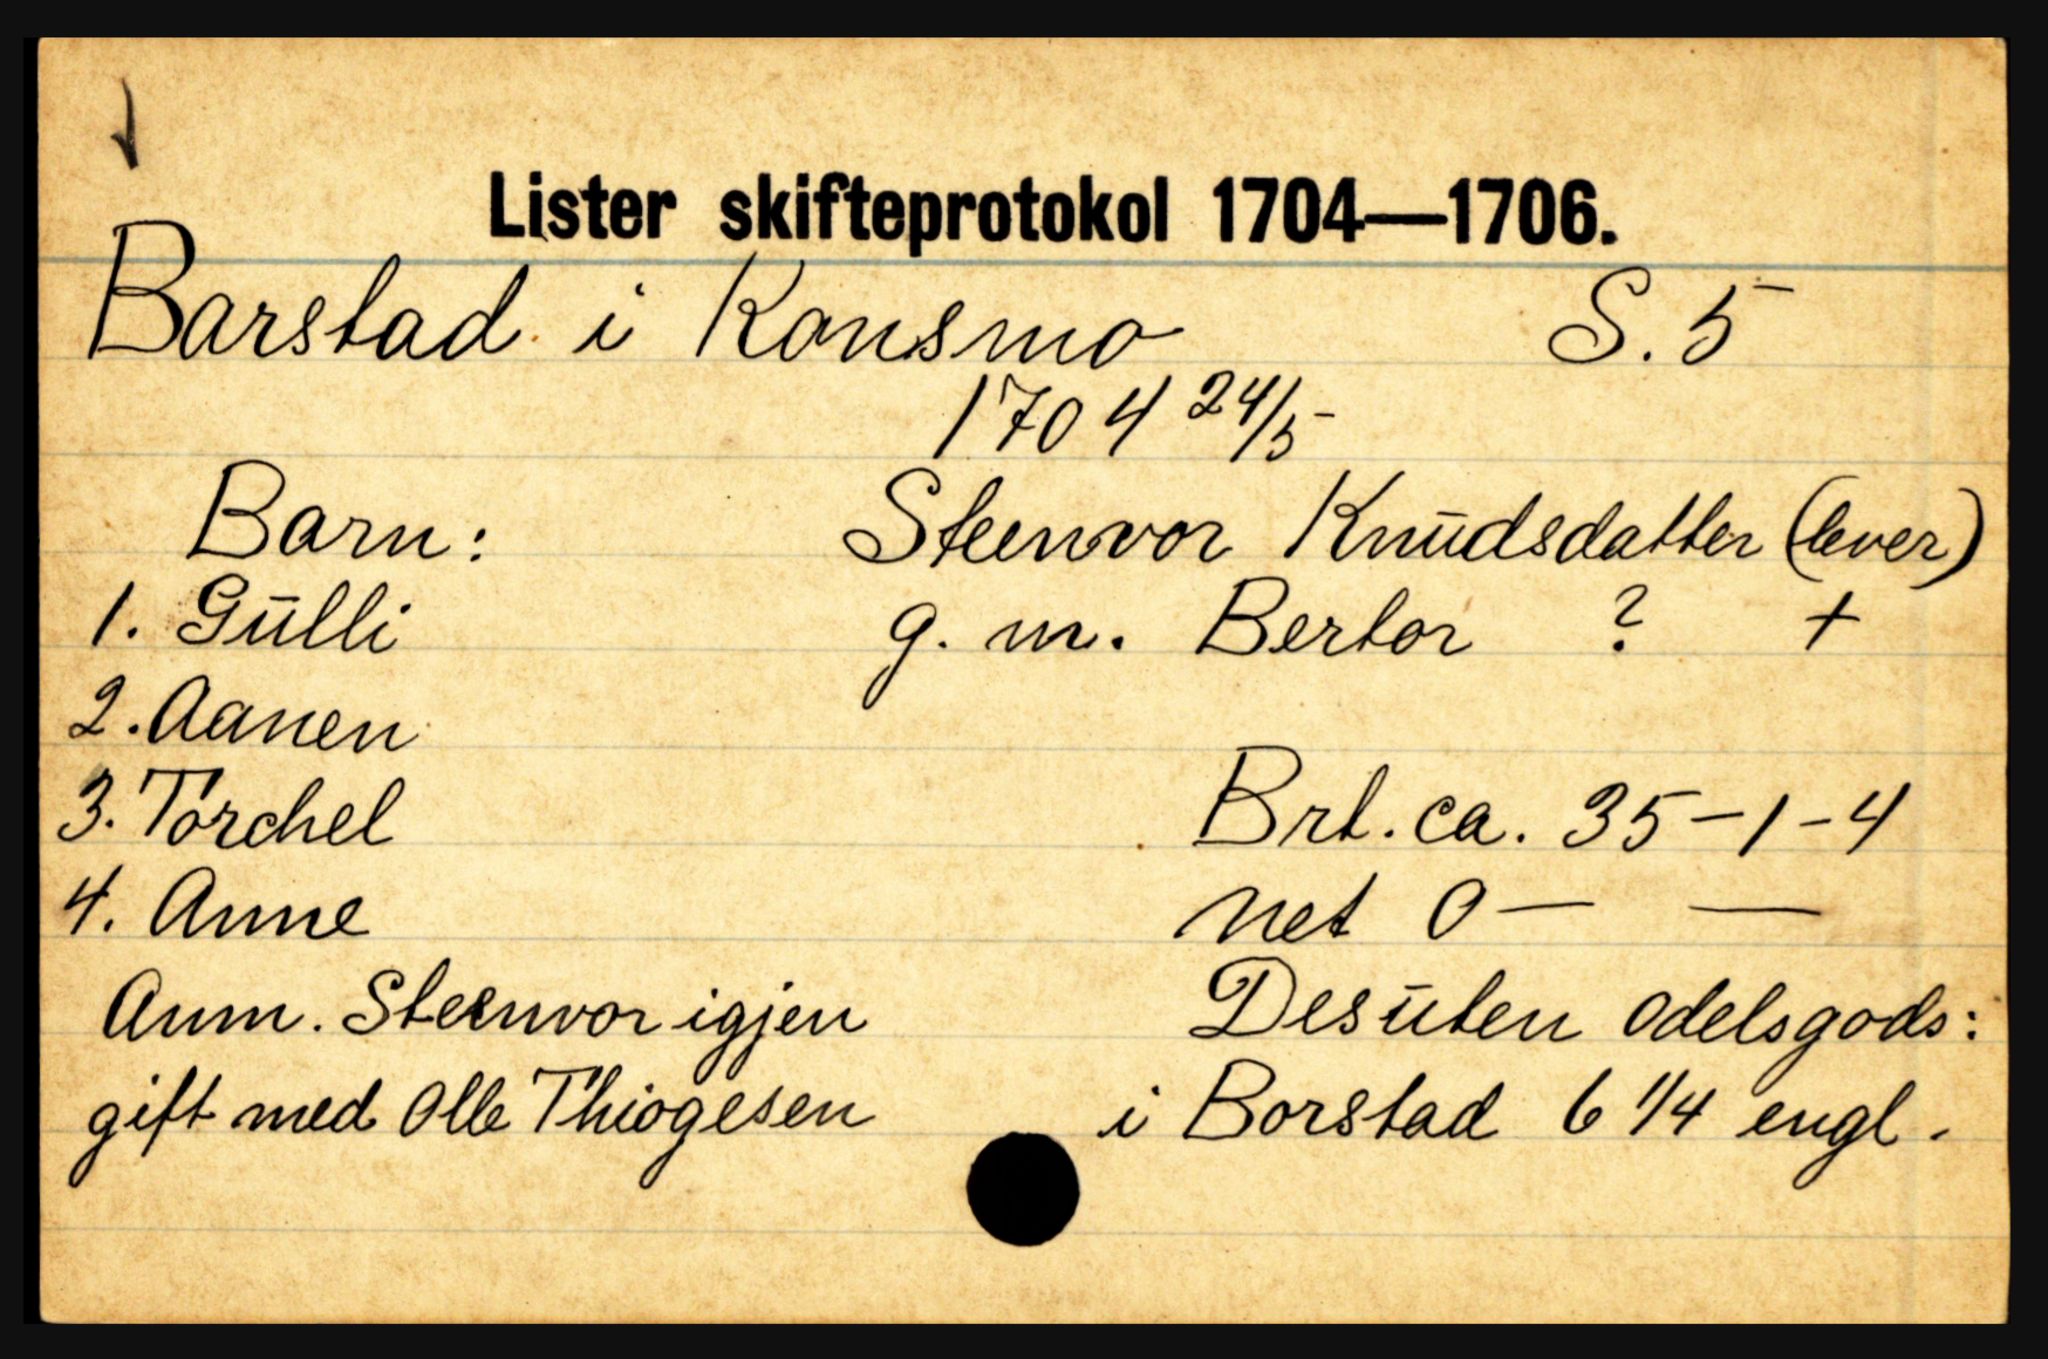 Lister skifteprotokol 1704—1706.
Barstad i Konsmo S. 5
1704 24/5
Barn: Steenvor Knudsdatter (lever)
1. Gulli g. m. Bertor ? +
2. Aanen
3. Torchel Brt. ca. 35-1-4
4. Anne net 0 — —
Anm. Steenvor igjen Desuten odelsgods:
gift med Olle Thiogesen i Borstad 6 1/4 engl.